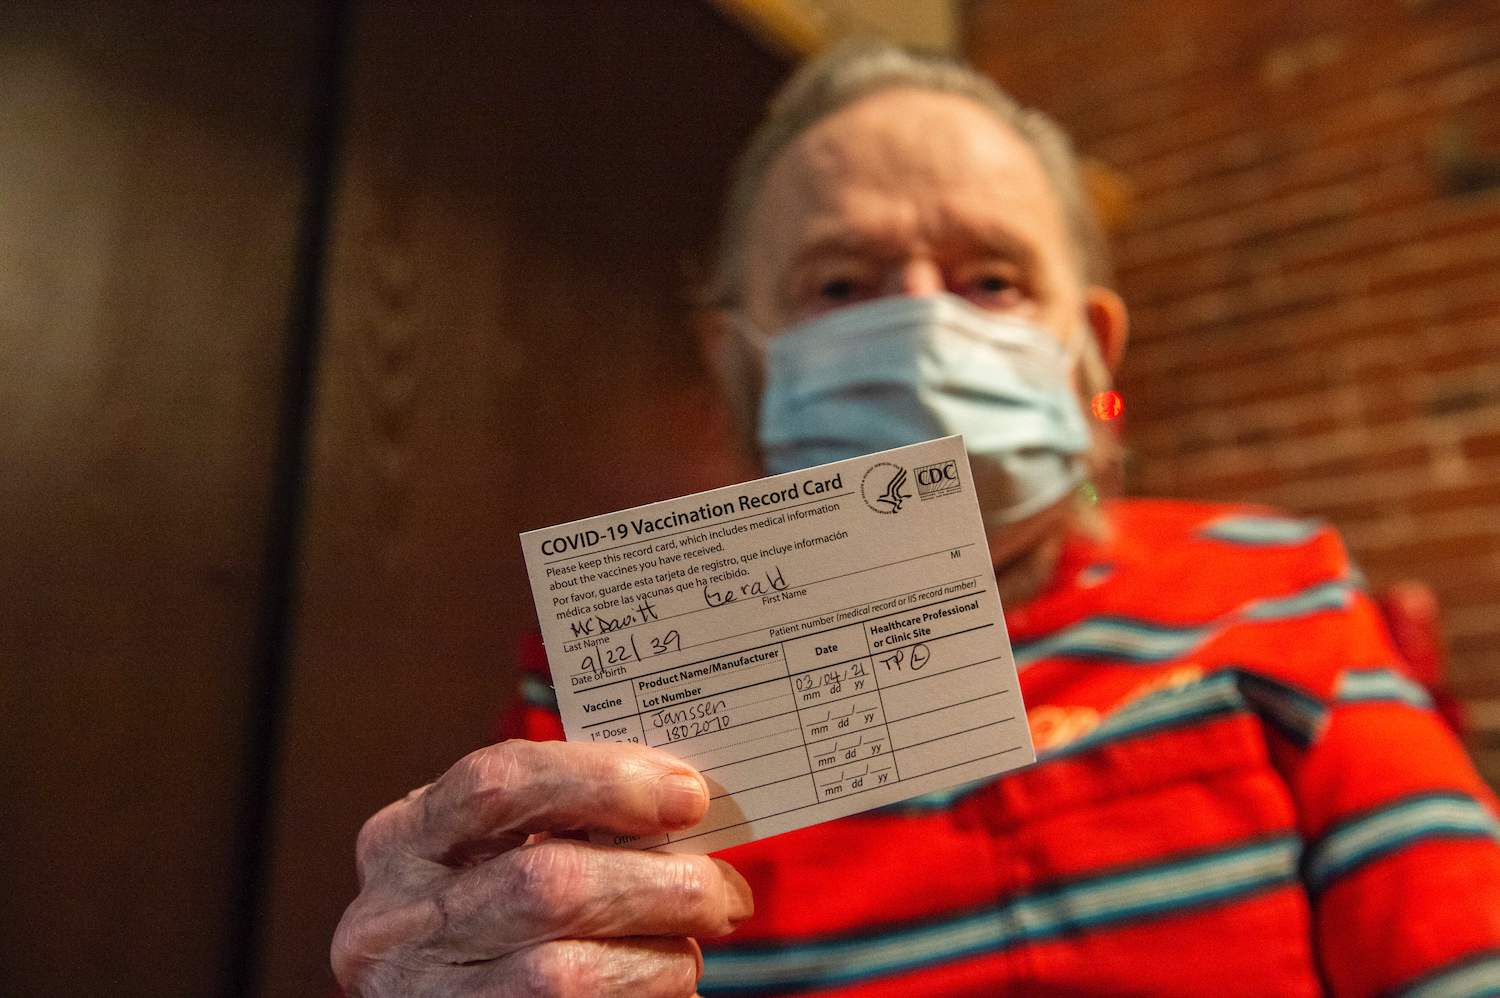 COVID-19 Vaccination Record Card
CDC
Please keep this record card, which includes medical information
about the vaccines you have received.
Por favor, guarde esta tarjeta de registro, que incluye información
médica sobre las vacunas que ha recibido.
McDavitt Gerald
Last Name First Name MI
9/22/39
Date of birth Patient number (medical record or IIS record number)
Vaccine Product Name/Manufacturer Date Healthcare Professional
Lot Number or Clinic Site
1st Dose Janssen 03/04/21 TP L
19 1802070 mm dd yy
mm dd yy
mm dd yy
Other mm dd yy